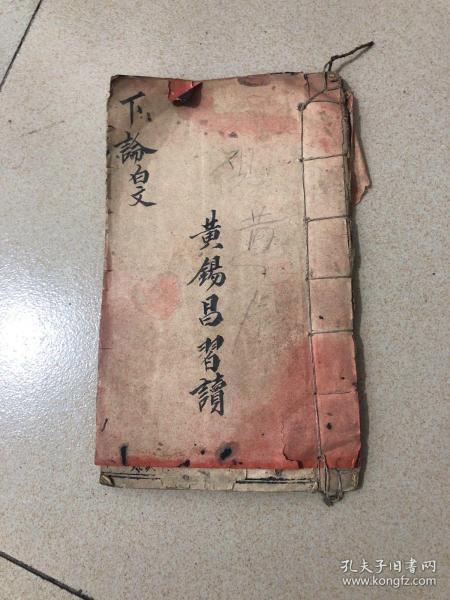 下論白文
黃錫昌習讀
黃
孔夫子旧书网
www.kongfz.com